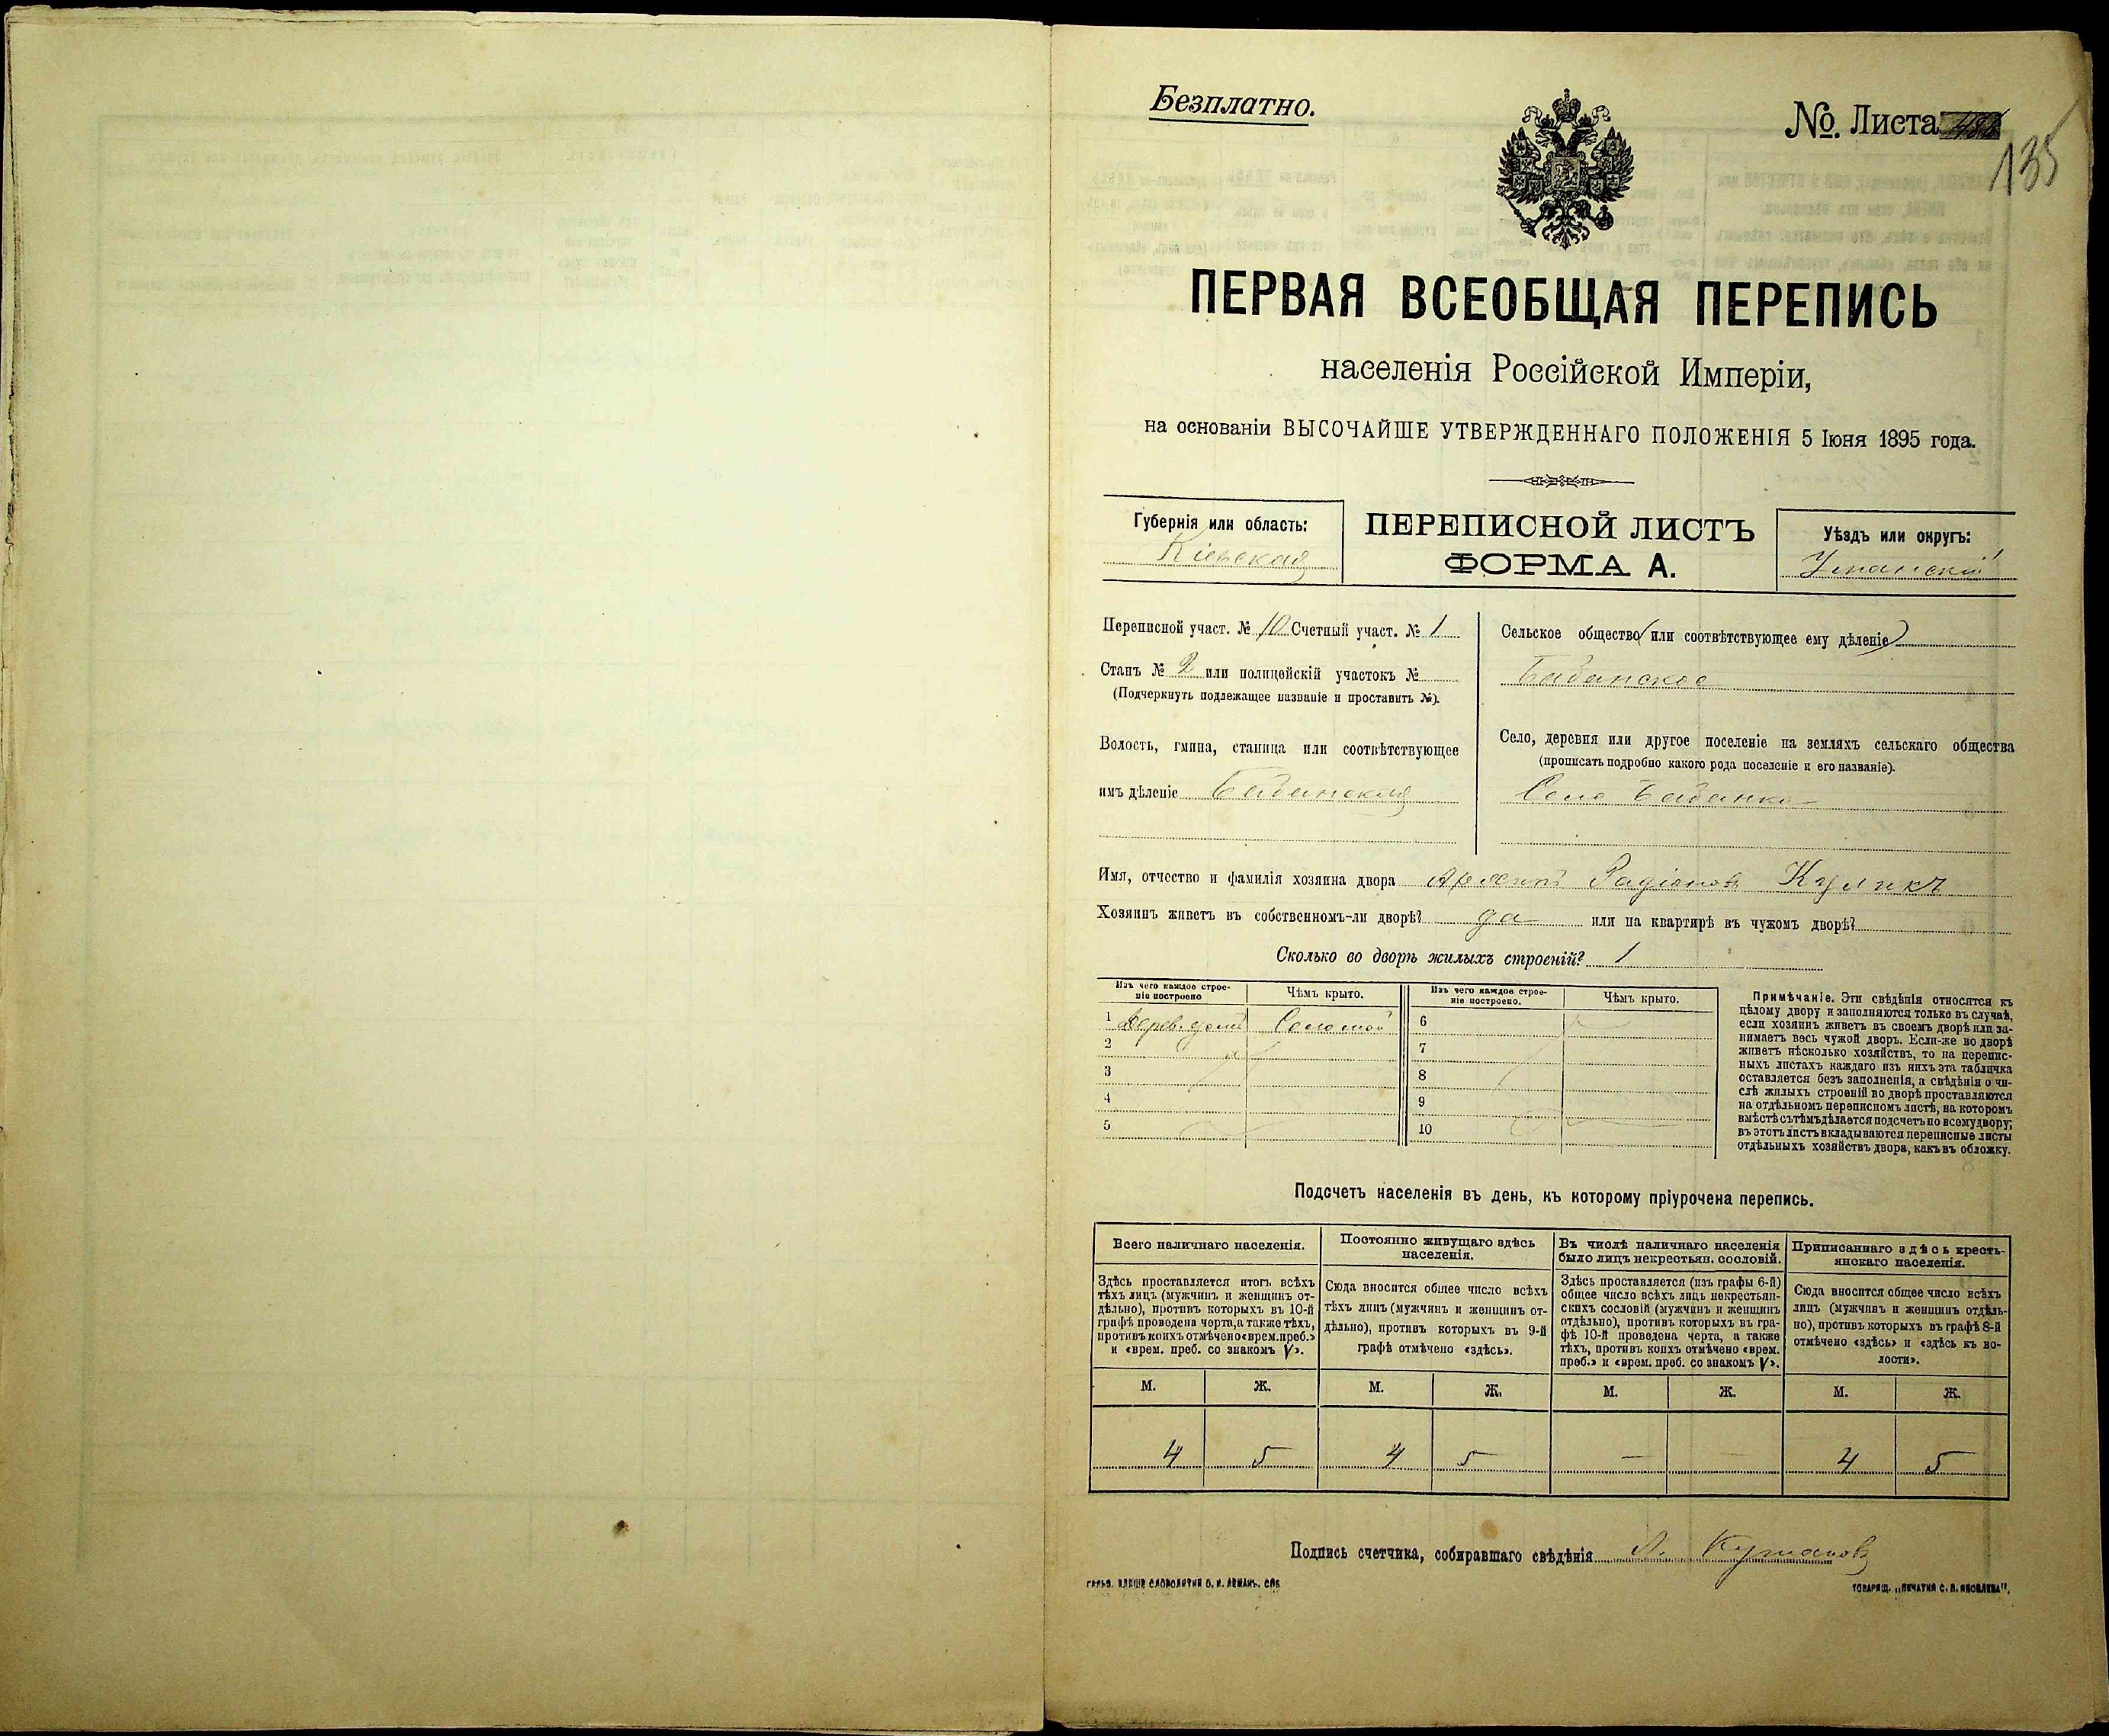 Безплатно.
№. Листа
135
ПЕРВАЯ ВСЕОБЩАЯ ПЕРЕПИСЬ
населенія Россійской Имперіи,
на основаніи ВЫСОЧАЙШЕ УТВЕРЖДЕННАГО ПОЛОЖЕНІЯ 5 Іюня 1895 года.
Губернія или область:
Кіевская
ПЕРЕПИСНОЙ ЛИСТЪ
ФОРМА А.
Уѣздъ или округъ:
Уманскій
Переписной участ. № 10 Счетный участ. № 1
Станъ № 2 или полицейскій участокъ №
(Подчеркнуть подлежащее названіе и проставить №).
Волость, гмина, станица или соотвѣтствующее
имъ дѣленіе Бабанская
Сельское общество (или соотвѣтствующее ему дѣленіе)
Бабанское
Село, деревня или другое поселеніе на земляхъ сельскаго общества
(прописать подробно какого рода поселеніе и его названіе).
Село Бабанка
Имя, отчество и фамилія хозяина двора Архипъ Радіоновъ
Хозяинъ живетъ въ собственномъ-ли дворѣ? да или на квартирѣ въ чужомъ дворѣ?
Сколько во дворѣ жилыхъ строеній? 1
Изъ чего каждое строе-
ніе построено
Чѣмъ крыто.
Изъ чего каждое строе-
ніе построено.
Чѣмъ крыто.
1 Дерев. домъ Соломой 6
2 7
3 8
4 9
5 10
Примѣчаніе. Эти свѣдѣнія относятся къ
цѣлому двору и заполняются только въ случаѣ,
если хозяинъ живетъ въ своемъ дворѣ или за-
нимаетъ весь чужой дворъ. Если-же во дворѣ
живетъ нѣсколько хозяйствъ, то на перепис-
ныхъ листахъ каждаго изъ нихъ эта табличка
оставляется безъ заполненія, а свѣдѣнія о чи-
слѣ жилыхъ строеній во дворѣ проставляются
на отдѣльномъ переписномъ листѣ, на которомъ
вмѣстѣ съ тѣмъ дѣлается подсчетъ по всему двору;
въ этотъ листъ вкладываются переписные листы
отдѣльныхъ хозяйствъ двора, какъ въ обложку.
Подсчетъ населенія въ день, къ которому пріурочена перепись.
Всего наличнаго населенія.
Здѣсь проставляется итогъ всѣхъ
тѣхъ лицъ (мужчинъ и женщинъ от-
дѣльно), противъ которыхъ въ 10-й
графѣ проведена черта, а также тѣхъ,
противъ коихъ отмѣчено «врем. преб.»
и «врем. преб. со знакомъ V».
Постоянно живущаго здѣсь
населенія.
Сюда вносится общее число всѣхъ
тѣхъ лицъ (мужчинъ и женщинъ от-
дѣльно), противъ которыхъ въ 9-й
графѣ отмѣчено «здѣсь».
Въ числѣ наличнаго населенія
было лицъ некрестьян. сословій.
Здѣсь проставляется (изъ графы 6-й)
общее число всѣхъ лицъ некрестьян-
скихъ сословій (мужчинъ и женщинъ
отдѣльно), противъ которыхъ въ гра-
фѣ 10-й проведена черта, а также
тѣхъ, противъ коихъ отмѣчено «врем.
преб.» и «врем. преб. со знакомъ V».
Приписаннаго здѣсь кресть-
янскаго населенія.
Сюда вносится общее число всѣхъ
лицъ (мужчинъ и женщинъ отдѣль-
но), противъ которыхъ въ графѣ 8-й
отмѣчено «здѣсь» и «здѣсь къ во-
лости».
М. Ж. М. Ж. М. Ж. М. Ж.
4 5 4 5 — — 4 5
Подпись счетчика, собиравшаго свѣдѣнія
ГАЛЬВ. КЛИШЕ СЛОВОЛИТНИ О. И. ЛЕМАНЪ. СПБ
ТОВАРИЩ. „ПЕЧАТНЯ С. П. ЯКОВЛЕВА“.